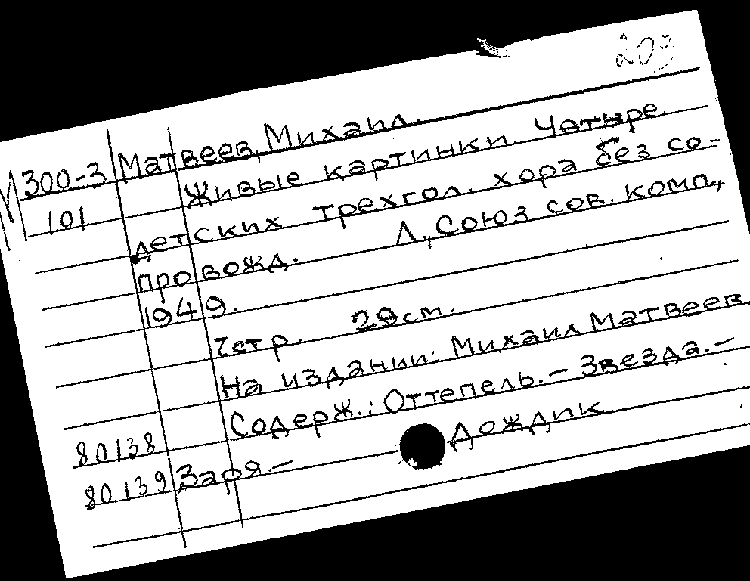 203
М300-3 Матвеев, Михаил.
101 Живые картинки. Четыре
детских трехгол. хора без со-
провожд. Л., Союз сов. комп.,
1949.
7стр. 29см.
На издании: Михаил Матвеев
Содерж.: Оттепель. – Звезда. –
80138
80139 Заря. – Дождик